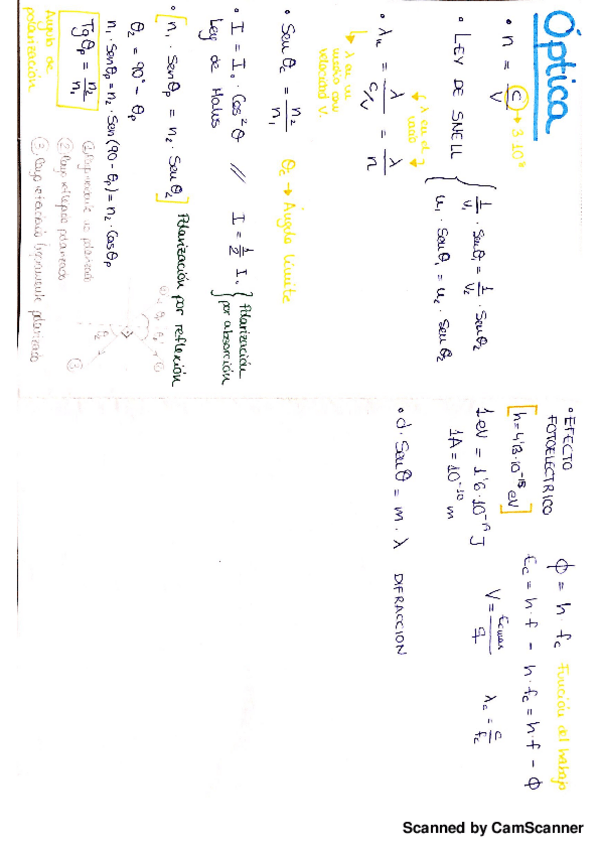 Óptica
• n = C/V → 3·10⁸
• LEY DE SNELL { 1/V₁ · Senθ₁ = 1/V₂ · Senθ₂
n₁ · Senθ₁ = n₂ · Senθ₂
• λn = λ/(c/v) = λ/n
λ en el vacío
λ en un medio con velocidad V.
• Sen θc = n₂/n₁ θc → Ángulo límite
• I = I₀ · Cos²θ // I = 1/2 I₀ } Polarización por absorción
Ley de Malus
• [n₁ · Senθp = n₂ · Senθ₂] Polarización por reflexión
θ₂ = 90° − θp
n₁ · Senθp = n₂ · Sen(90 − θp) = n₂ · Cosθp
Tgθp = n₂/n₁
Ángulo de polarización
① Rayo incidente no polarizado
② Rayo reflejado polarizado
③ Rayo refractado parcialmente polarizado
③
• EFECTO FOTOELÉCTRICO
ϕ = h · fc Función del trabajo
[h = 4'13·10⁻¹⁵ eV]
Ec = h · f − h · fc = h · f − ϕ
1 eV = 1'6·10⁻¹⁹ J
V = Ecmax/q
λc = c/fc
1A = 10⁻¹⁰ m
• d · Senθ = m · λ DIFRACCION
Scanned by CamScanner